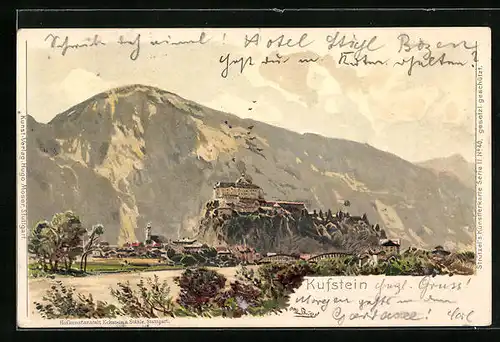 Schreib doch einmal! Hotel Stigl Bozen
Hast du m Natur. erhalten?
Kunst-Verlag Hugo Moser, Stuttgart
Strützel's Künstlerkarte Serie II No 40, gesetzl. geschützt.
Kufstein herzl. Gruss!
Morgen geht's an den
Gardasee!
Hofkunstanstalt Eckstein & Stähle, Stuttgart.